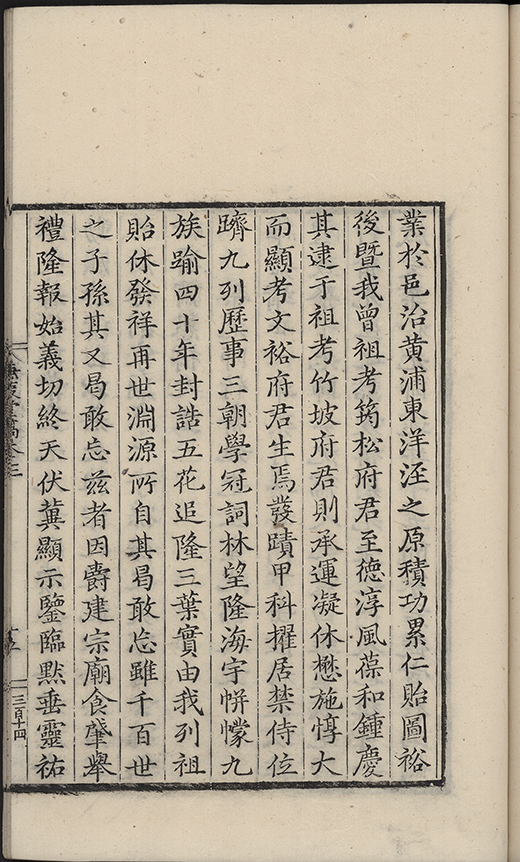 業於邑治黃浦東洋涇之原積功累仁貽圖裕
後暨我曾祖考筠松府君至德淳風葆和鍾慶
其逮于祖考竹坡府君則承運凝休懋施惇大
而顯考文裕府君生焉發蹟甲科擢居禁侍位
躋九列歷事三朝學冠詞林望隆海宇帡幪九
族踰四十年封誥五花追隆三葉實由我列祖
貽休發祥再世淵源所自其曷敢忘雖千百世
之子孫其又曷敢忘茲者因爵建宗廟食肇舉
禮隆報始義切終天伏冀顯示鑒臨默垂靈祐
三百十四